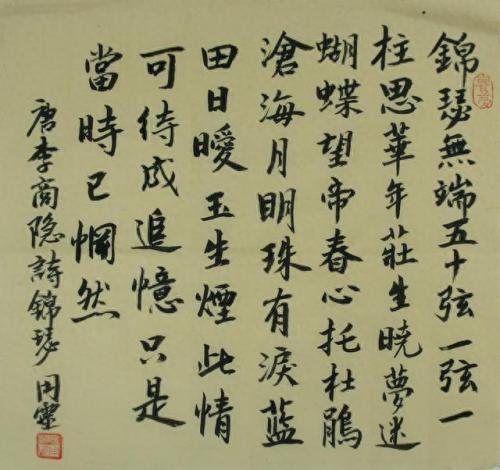 錦瑟無端五十弦一弦一
柱思華年莊生曉夢迷
蝴蝶望帝春心托杜鵑
滄海月明珠有淚藍
田日曖玉生煙此情
可待成追憶只是
當時已惘然
唐李商隐詩錦瑟